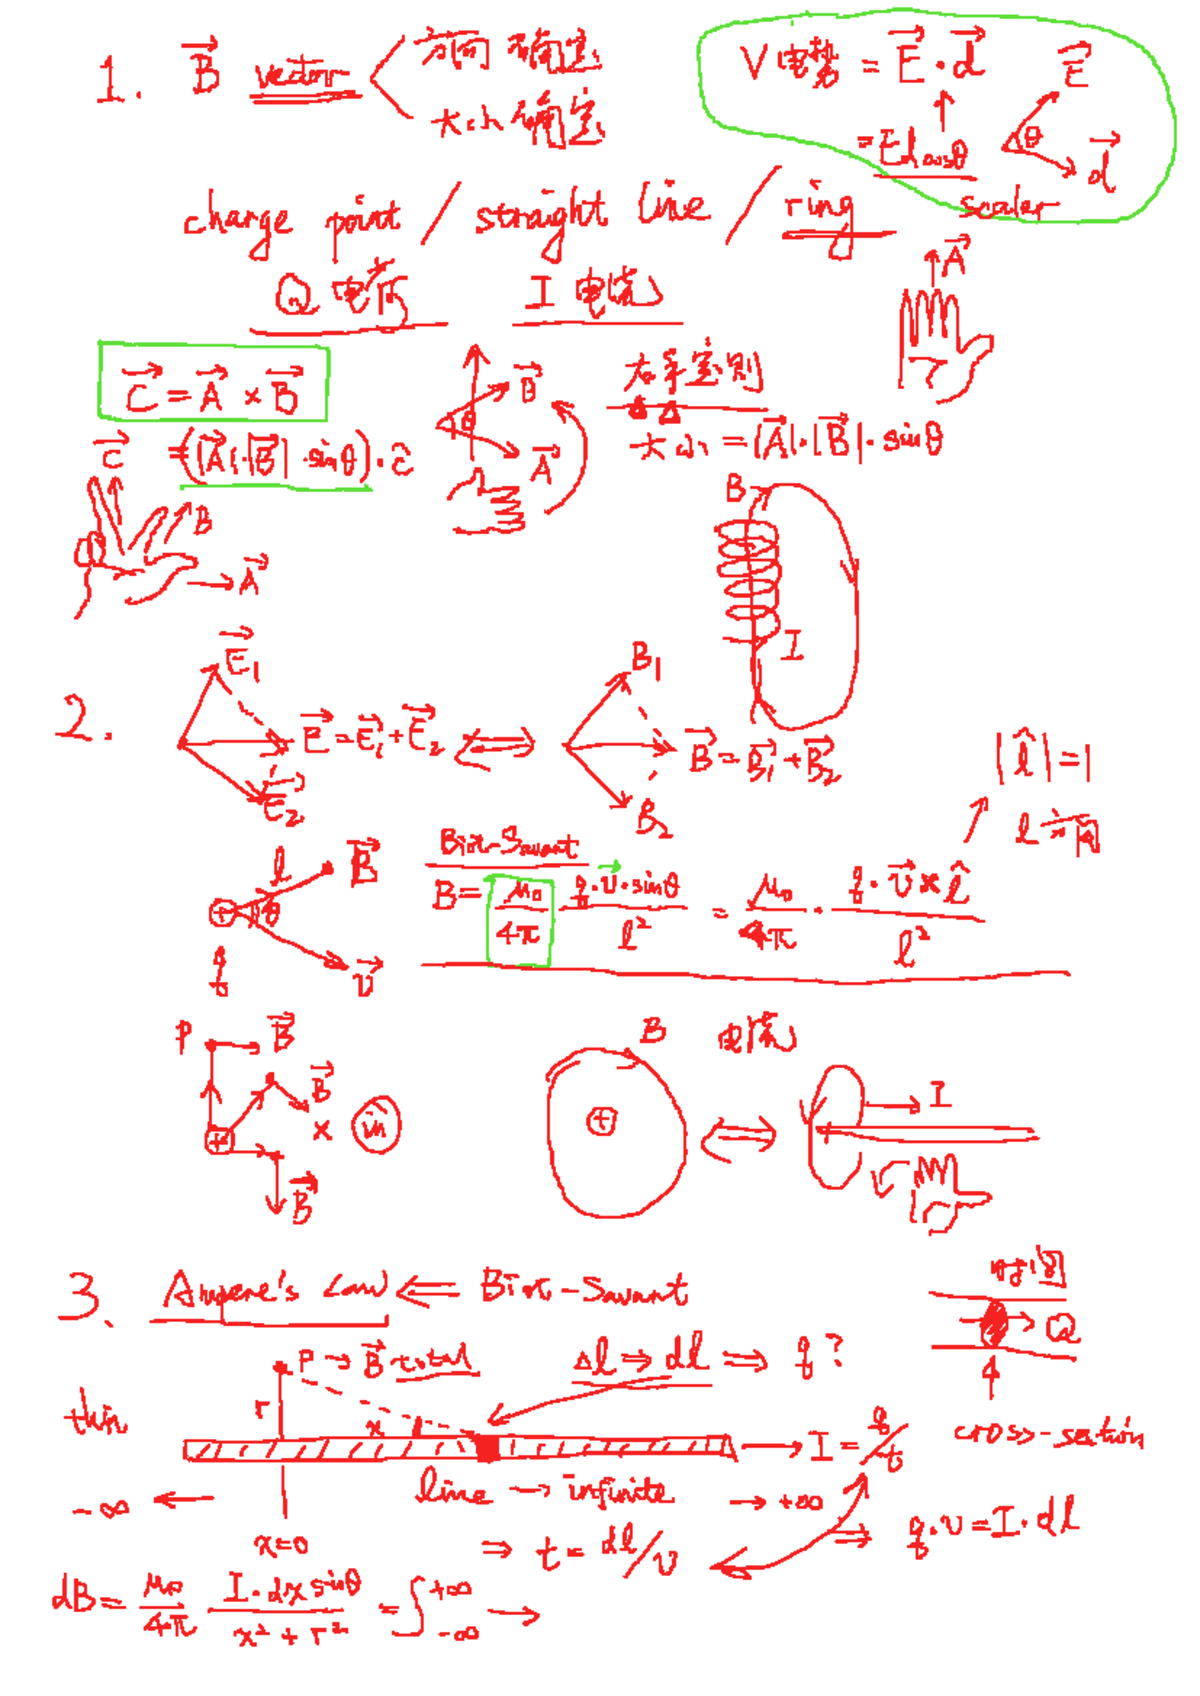 1. B⃗ vector 方向 确定
大小 确定
V 电势 = E⃗·d⃗
= Ed cosθ
scalar
E⃗
θ
d⃗
charge point / straight line / ring
Q 电荷 I 电流
A⃗
C⃗ = A⃗ × B⃗
= (|A⃗|·|B⃗|·sinθ)·ĉ
B⃗
θ
A⃗
右手定则
大小 = |A⃗|·|B⃗|·sinθ
C⃗
B
A⃗
B
I
2. E⃗₁
E⃗ = E⃗₁ + E⃗₂ ⟺
E⃗₂
B₁
B⃗ = B⃗₁ + B⃗₂
B₂
|l̂| = 1
l 方向
l B⃗
θ
q v⃗
Biot-Savart
B = μ₀/4π q·v⃗·sinθ/l² = μ₀/4π · q·v⃗×l̂/l²
P B⃗
B⃗
x in
B⃗
B 电流
+ ⟺ I
3. Ampere's Law ⟸ Biot-Savart
时间
Q
cross-section
P → B⃗ total Δl ⇒ dl ⇒ q?
thin r x
→ I = q/t
line → infinite → +∞
-∞ ←
x=0
⇒ t = dl/v ⇒ q·v = I·dl
dB = μ₀/4π I·dx sinθ/x² + r² = ∫₋∞⁺∞ →